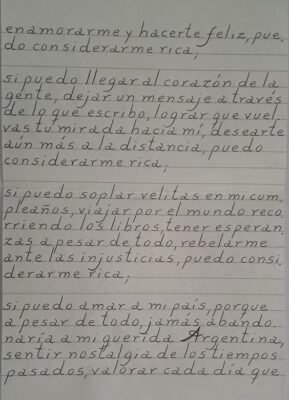 enamorarme y hacerte feliz, pue-
do considerarme rica;
si puedo llegar al corazón de la
gente, dejar un mensaje a través
de lo que escribo, lograr que vuel-
vas tu mirada hacia mí, desearte
aún más a la distancia, puedo
considerarme rica;
si puedo soplar velitas en mi cum-
pleaños, viajar por el mundo reco-
rriendo los libros, tener esperan-
zas a pesar de todo, rebelarme
ante las injusticias, puedo consi-
derarme rica;
si puedo amar a mi país, porque
a pesar de todo, jamás abando-
naría a mi querida Argentina,
sentir nostalgia de los tiempos
pasados, valorar cada día que